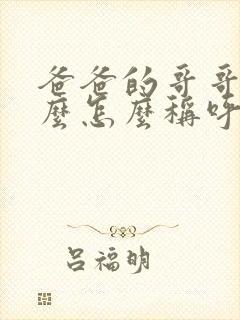 爸爸的哥哥
麼怎麼稱呼
吕福明